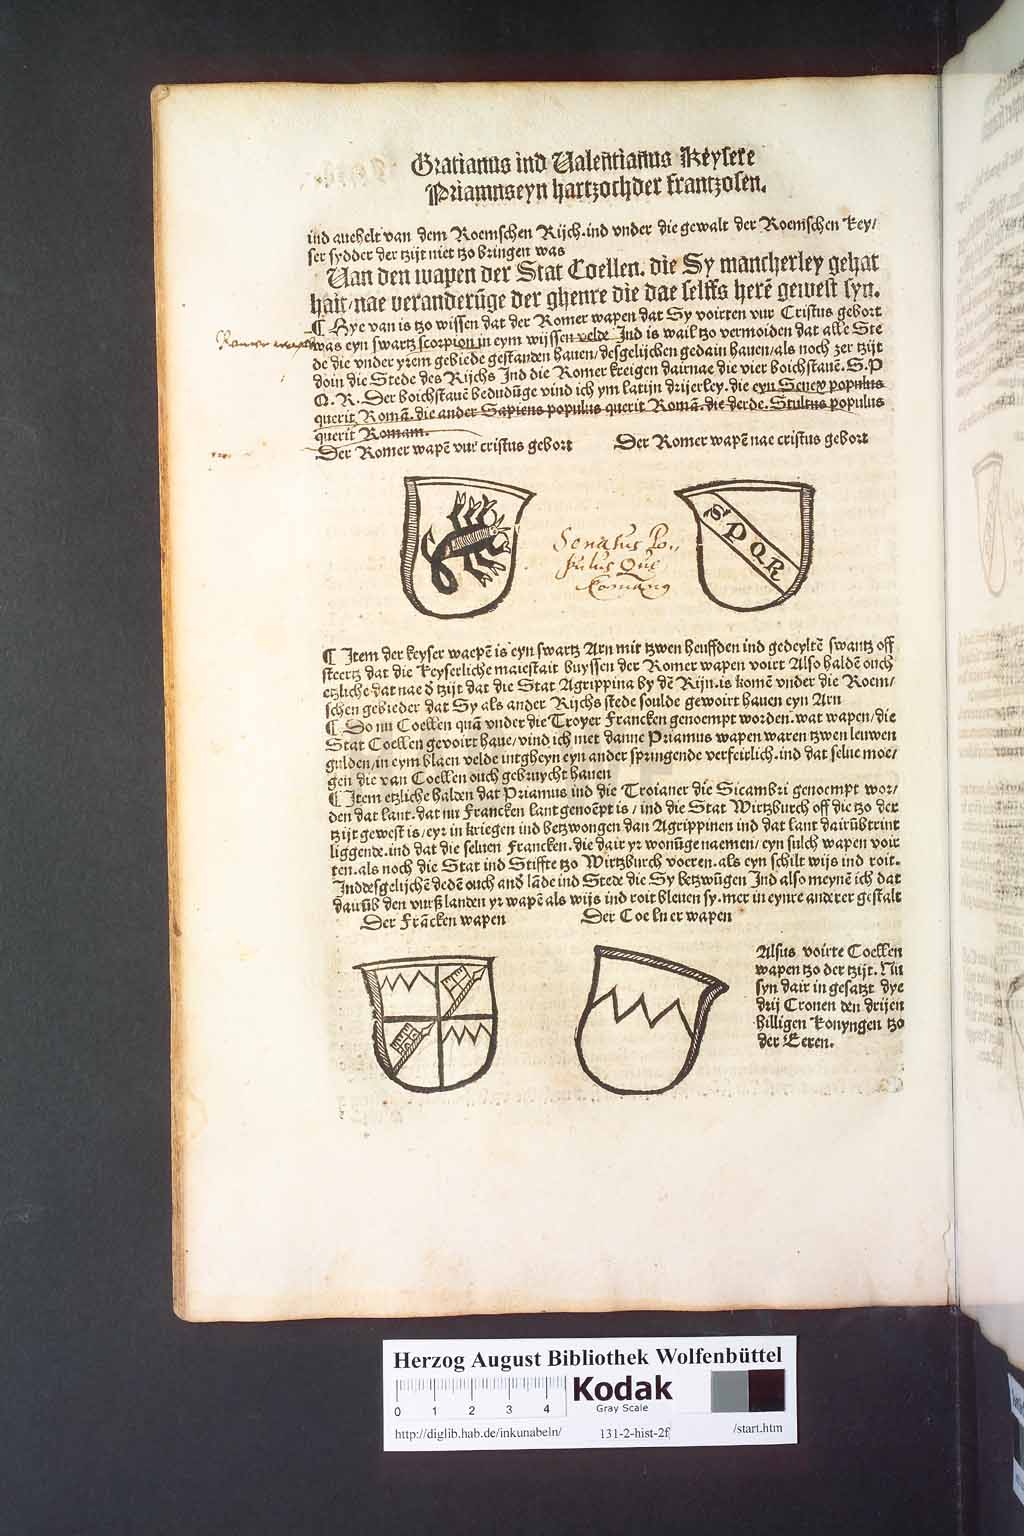 Gratianus ind Valentianus Keysere
Priamuseyn hartzochder frantzosen.
ind auehelt van dem Roemschen Rijch.ind vnder die gewalt der Roemschen key/
ser sydder der tzijt niet tzo bringen was
Uan den wapen der Stat Coellen. die Sy mancherley gehat
hait/nae veranderūge der ghenre die dae selffs herē gewest syn.
¶ Hye van is tzo wissen dat der Romer wapen dat Sy voirten vur Cristus gebort
Romer wapen
was eyn swartz scorpion in eym wijssen velde Ind is wail tzo vermoiden dat alle Ste
de die vnder yrem gebiede gestanden hauen/desgelijchen gedain hauen/als noch zer tzijt
doin die Stede des Rijchs Ind die Romer kreigen dairnae die vier boichstauē. S.P
Q.R. Der boichstauē bedudūge vind ich ym latijn drijerley.die eyn Senex populus
querit Romā.die ander Sapiens populus querit Romā.die derde.Stultus populus
querit Romam.
Der Romer wapē vur cristus gebort
Der Romer wapē nae cristus gebort
Senatus Po,,
pulus Quē
Romanus
S P Q R
¶ Item der keyser waepē is eyn swartz Arn mit tzwen heuffden ind gedeyltē swantz off
steertz dat die keyserliche maiestait buyssen der Romer wapen voirt Also haldē ouch
etzliche dat nae d tzijt dat die Stat Agrippina by dē Rijn.is komē vnder die Roem/
schen gebieder dat Sy als ander Rijchs stede soulde gewoirt hauen eyn Arn
¶ So nu Coellen quā vnder die Troyer Francken genoempt worden.wat wapen/die
Stat Coellen gevoirt haue/vind ich niet danne Priamus wapen waren tzwen leuwen
gulden/in eym blaen velde intgheyn eyn ander springende verfeirlich.ind dat selue moe/
gen die van Coellen ouch gebruycht hauen
¶ Item etzliche halden dat Priamus ind die Troianer die Sicambri genoempt wor/
den dat lant.dat nu Francken lant genoēpt is/ind die Stat Wirtzburch off die tzo der
tzijt gewest is/eyr in kriegen ind betzwongen dan Agrippinen ind dat lant dairūbtrint
liggende.ind dat die seluen Francken.die dair yr wonūge naemen/eyn sulch wapen voir
ten.als noch die Stat ind Stiffte tzo Wirtzburch voeren.als eyn schilt wijs ind roit.
Inddesgelijchē dedē ouch and lāde ind Stede die Sy betzwūgen Ind also meynē ich dat
darūb den vurß landen yr wapē als wijs ind roit bleuen sy.mer in eynre anderer gestalt
Der Frācken wapen
Der Coelner wapen
Alsus voirte Coellen
wapen tzo der tzijt. Nu
syn dair in gesatzt dye
drij Cronen den drijen
hilligen konyngen tzo
der Eeren.
Herzog August Bibliothek Wolfenbüttel
0 1 2 3 4
Kodak
Gray Scale
http://diglib.hab.de/inkunabeln/
131-2-hist-2f
/start.htm